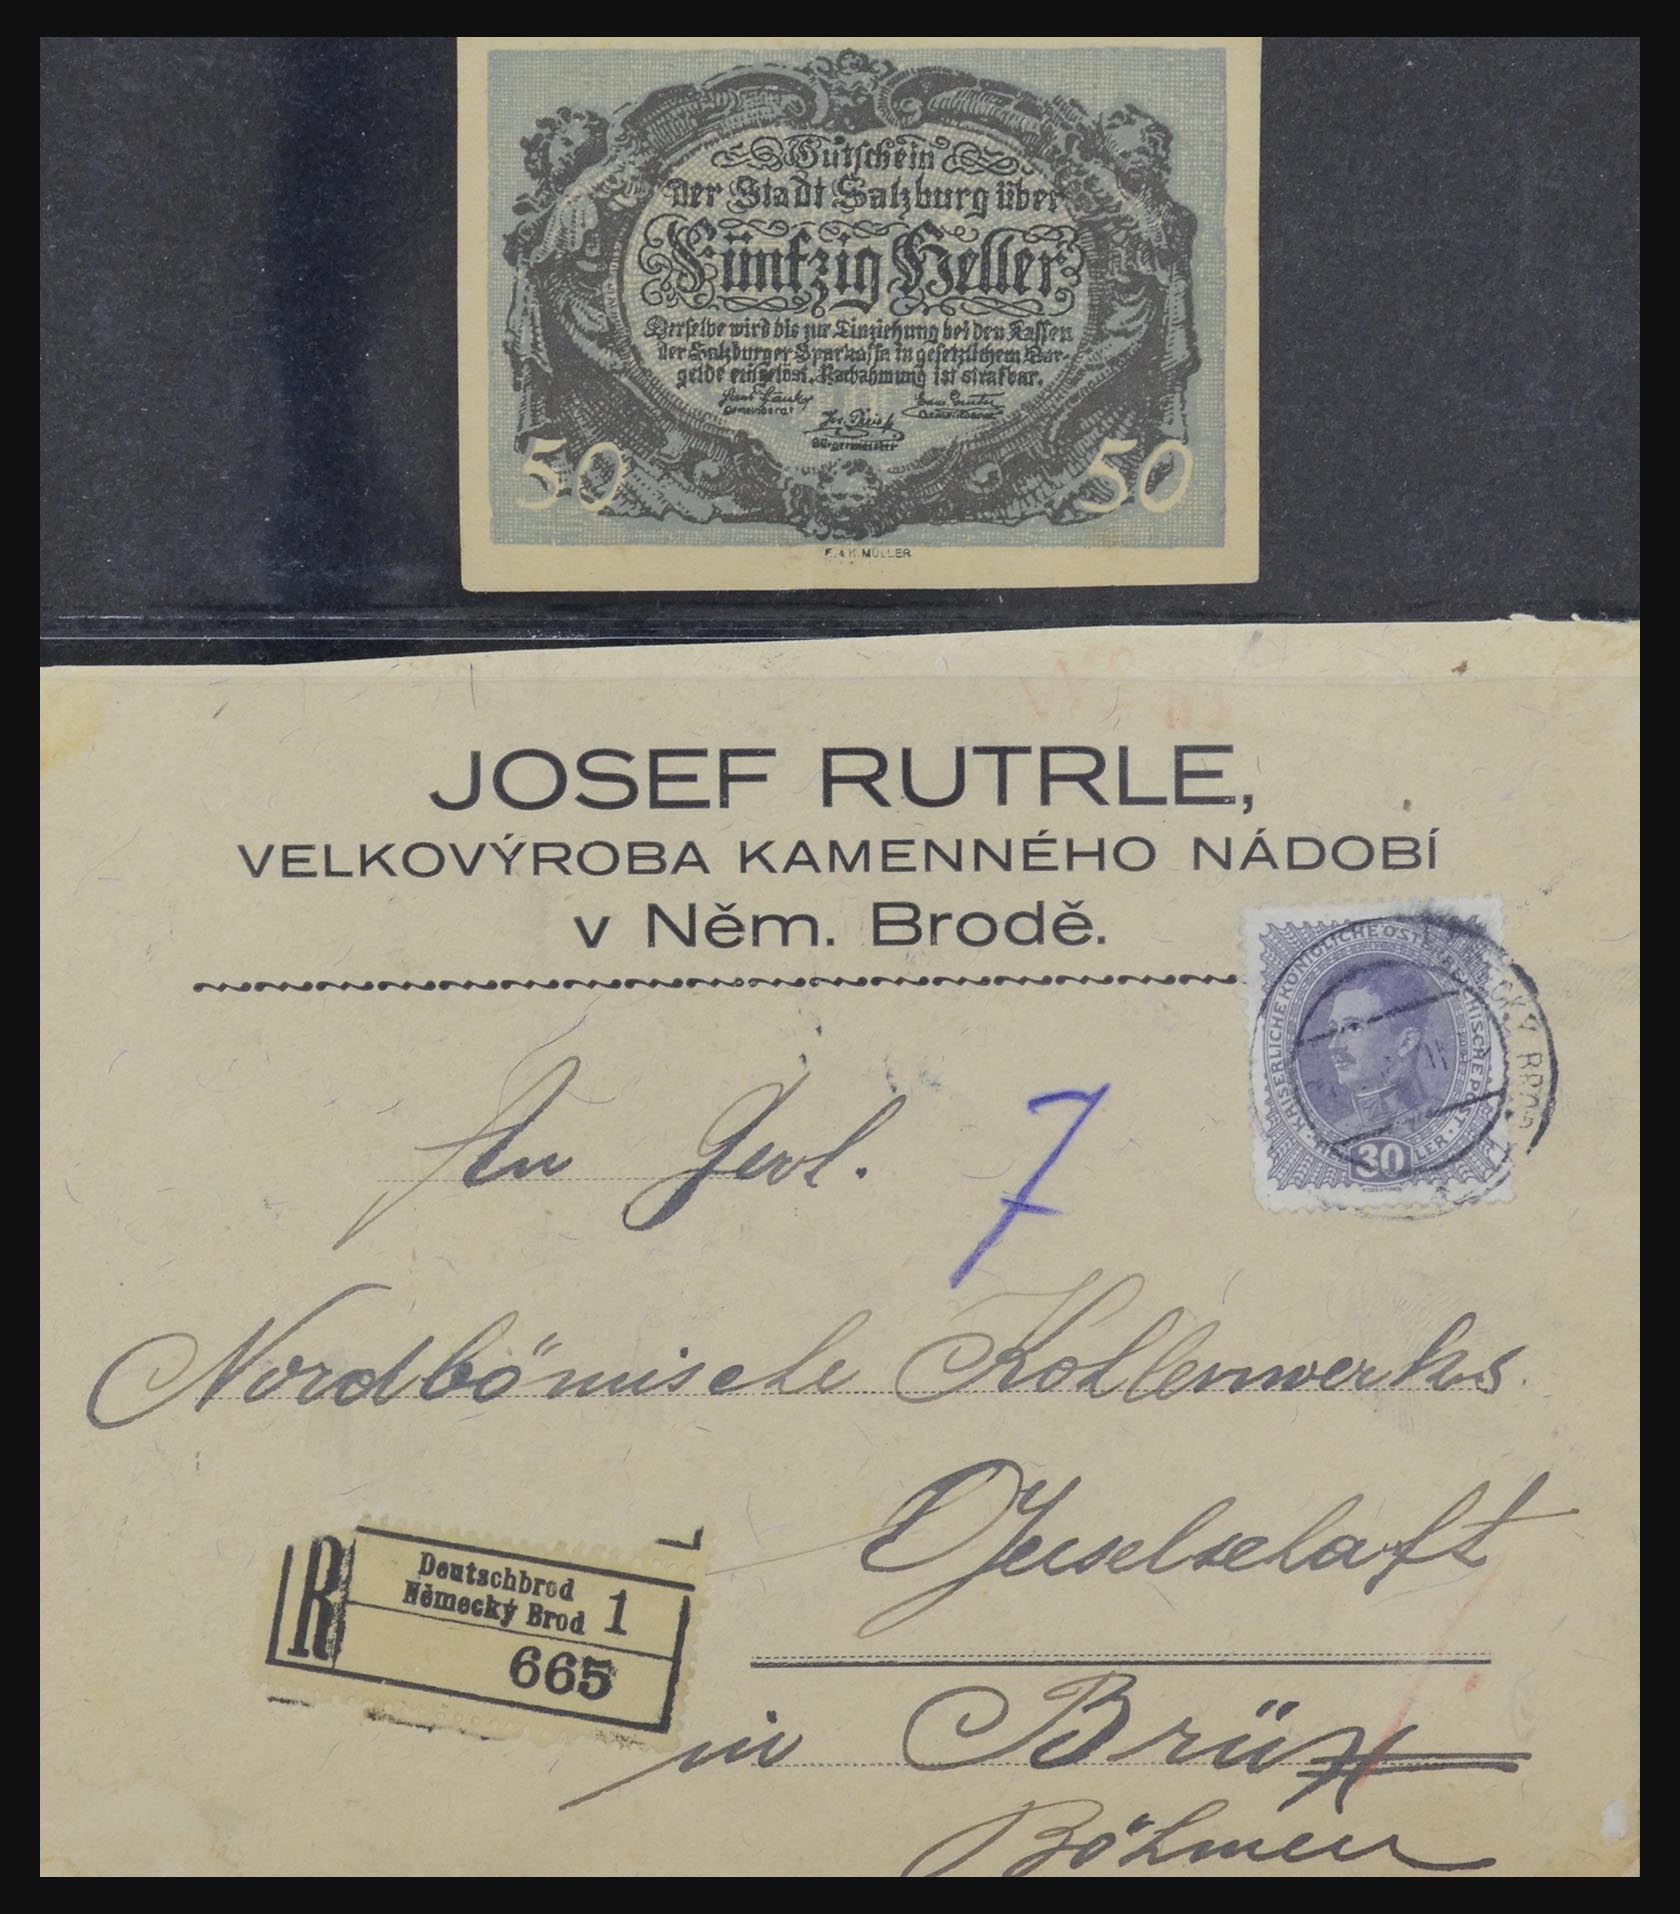 Gutschein
der Stadt Salzburg über
Fünfzig Heller
Derselbe wird bis zur Einziehung bei den Kassen
der Salzburger Sparkassa in gesetzlichem Bar-
gelde eingelöst. Nachahmung ist strafbar.
Gemeinderat
Gemeinderat
Bürgermeister
50
50
E. & K. MÜLLER
JOSEF RUTRLE,
VELKOVÝROBA KAMENNÉHO NÁDOBÍ
v Něm. Brodě.
KAISERLICHE KÖNIGLICHE ÖSTERREICHISCHE POST
30
An Gerl.
7
Nordbömische Kohlenwerks
Geselselaft
R
Deutschbrod
Německý Brod
1
665
in Brüx
Böhmen